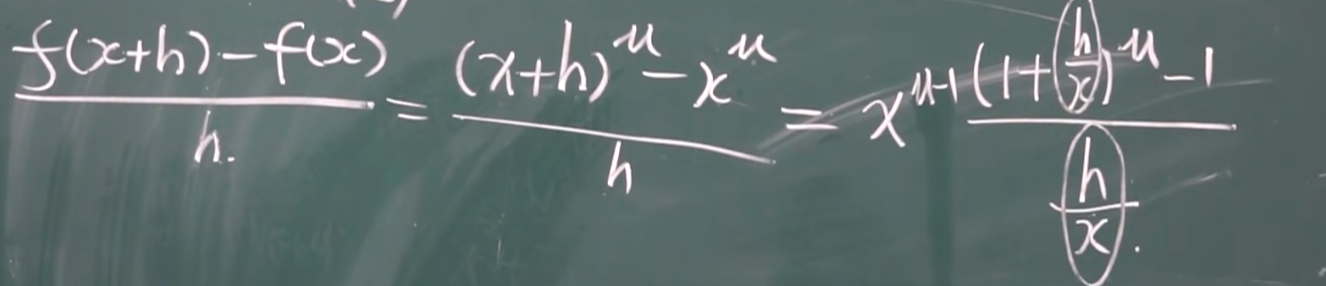 f(x+h)-f(x)/h. = (x+h)^μ-x^μ/h = x^μ-1 (1+(h/x))^μ-1/(h/x).